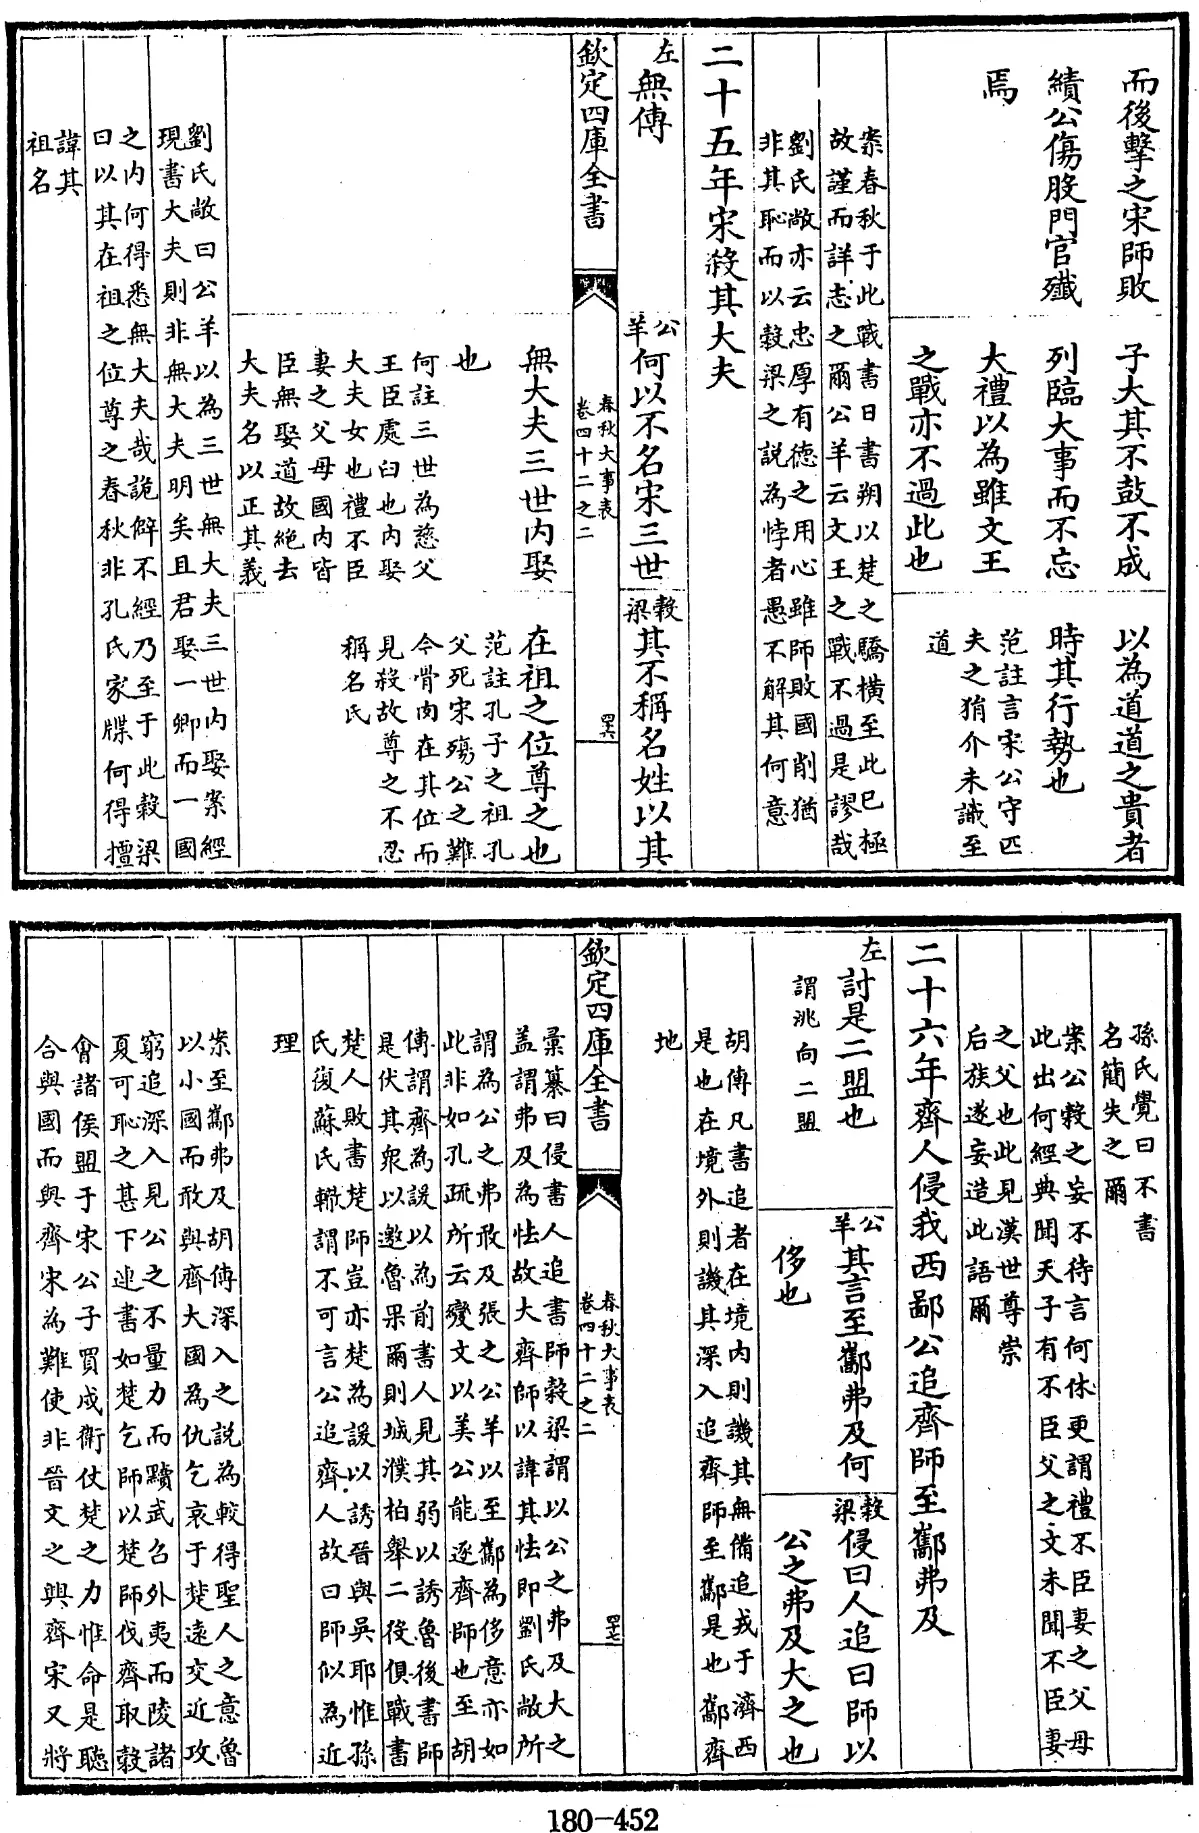 而後擊之宋師敗
績公傷股門官殲
焉
子大其不鼓不成
列臨大事而不忘
大禮以為雖文王
之戰亦不過此也
以為道道之貴者
時其行勢也
范註言宋公守匹
夫之狷介未識至
道
案春秋于此戰書日書朔以楚之驕橫至此已極
故謹而詳志之爾公羊云文王之戰不過是謬哉
劉氏敞亦云忠厚有德之用心雖師敗國削猶
非其恥而以穀梁之説為悖者愚不解其何意
二十五年宋殺其大夫
左無傳
公羊何以不名宋三世
無大夫三世内娶
也
何註三世為慈父
王臣處臼也内娶
大夫女也禮不臣
妻之父母國内皆
臣無娶道故絶去
大夫名以正其義
穀梁其不稱名姓以其
在祖之位尊之也
范註孔子之祖孔
父死宋殤公之難
今骨肉在其位而
見殺故尊之不忍
稱名氏
欽定四庫全書
春秋大事表
卷四十二之二
四六
劉氏敞曰公羊以為三世無大夫三世内娶案經
現書大夫則非無大夫明矣且君娶一卿而一國
之内何得悉無大夫哉詭僻不經乃至于此穀梁
曰以其在祖之位尊之春秋非孔氏家牒何得擅
諱其
祖名
孫氏覺曰不書
名簡失之爾
案公穀之妄不待言何休更謂禮不臣妻之父母
此出何經典聞天子有不臣父之文未聞不臣妻
之父也此見漢世尊崇
后族遂妄造此語爾
二十六年齊人侵我西鄙公追齊師至酅弗及
左討是二盟也
謂洮向二盟
公羊其言至酅弗及何
侈也
穀梁侵曰人追曰師以
公之弗及大之也
胡傳凡書追者在境内則譏其無備追戎于濟西
是也在境外則譏其深入追齊師至酅是也酅齊
地
欽定四庫全書
春秋大事表
卷四十二之二
四七
彙纂曰侵書人追書師穀梁謂以公之弗及大之
盖謂弗及為怯故大齊師以諱其怯即劉氏敞所
謂為公之弗敢及張之公羊以至酅為侈意亦如
此非如孔疏所云變文以美公能逐齊師也至胡
傳謂齊為諼以為前書人見其弱以誘魯後書師
是伏其衆以邀魯果爾則城濮柏舉二役俱戰書
楚人敗書楚師豈亦楚為諼以誘晉與吳耶惟孫
氏復蘇氏轍謂不可言公追齊人故曰師似為近
理
案至酅弗及胡傳深入之説為較得聖人之意魯
以小國而敢與齊大國為仇乞哀于楚遠交近攻
窮追深入見公之不量力而黷武召外夷而陵諸
夏可恥之甚下連書如楚乞師以楚師伐齊取穀
會諸侯盟于宋公子買戍衛仗楚之力惟命是聽
合與國而與齊宋為難使非晉文之興齊宋又將
180-452